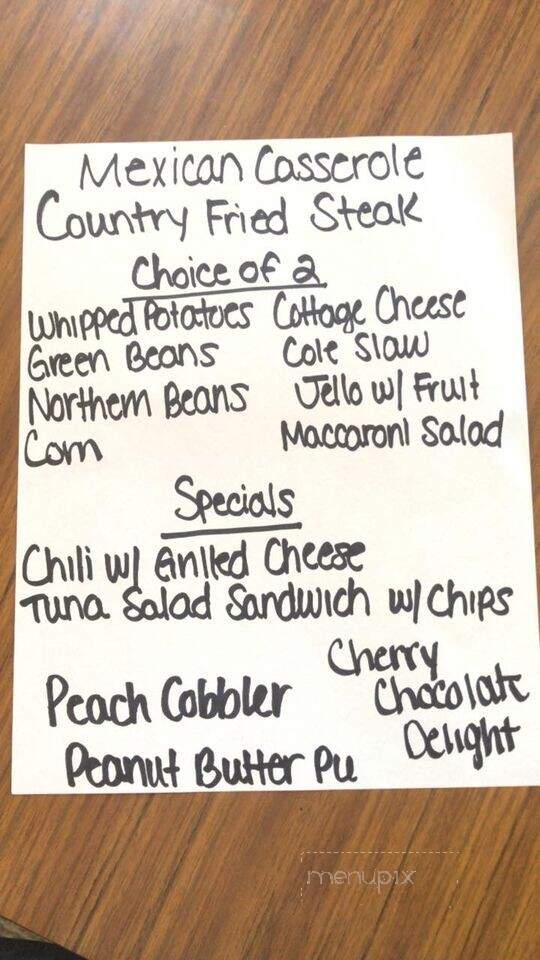 Mexican Casserole
Country Fried Steak
Choice of 2
Whipped Potatoes Cottage Cheese
Green Beans Cole Slaw
Northern Beans Jello w/ Fruit
Corn Maccaroni Salad
Specials
Chili w/ Grilled Cheese
Tuna Salad Sandwich w/ Chips
Cherry
Chocolate
Delight
Peach Cobbler
Peanut Butter Pie
menupix